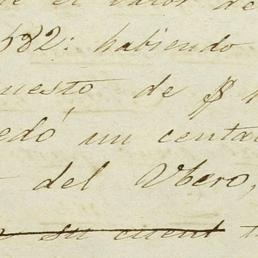 el valor de
582: habiendo
uesto de $
edó un centa
del Vbero,
su cuent